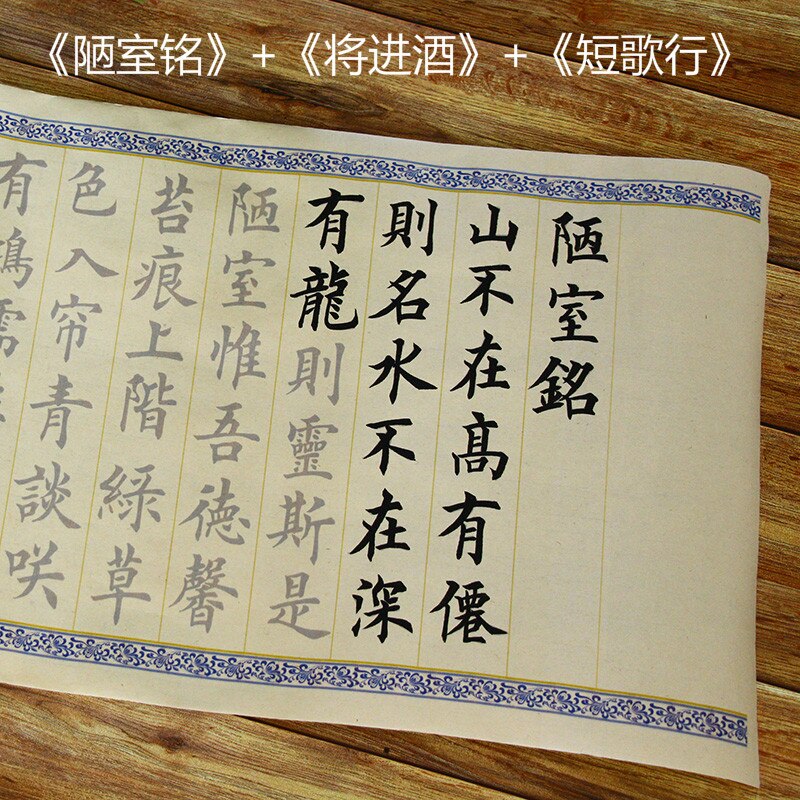 《陋室铭》+《将进酒》+《短歌行》
陋室銘
山不在髙有僊
則名水不在深
有龍則靈斯是
陋室惟吾德馨
苔痕上階綠草
色入帘青談咲
有鴻儒